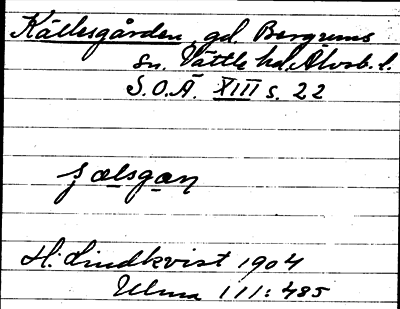 Källesgården, gd. Bergums
sn. Vättle hd, Älvsb. l.
S.O.Ä. XIII s. 22
H: Lindkvist 1904
Ulma 111: 485